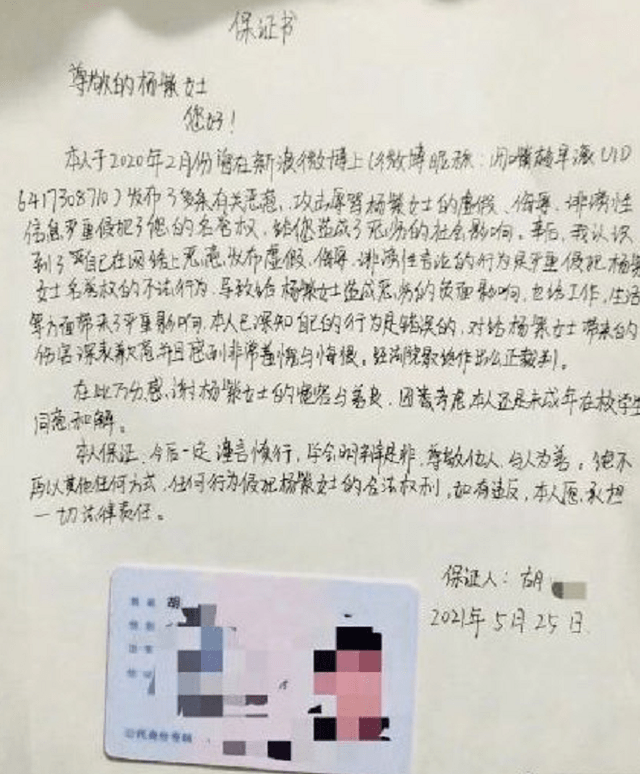 保证书
尊敬的杨紫女士
您好！
本人于2020年2月份曾在新浪微博上（微博昵称：用嘴碰旱 UID
6417308710）发布了多条有关恶意，攻击辱骂杨紫女士的虚假、侮辱、诽谤性
信息严重侵犯了您的名誉权，给您造成了恶劣的社会影响。事后，我认识
到了自己在网络上恶意发布虚假、侮辱、诽谤性言论的行为是严重侵犯杨紫
女士名誉权的不法行为，导致给杨紫女士造成恶劣的负面影响，也给工作，生活
等方面带来了严重影响。本人已深知自己的行为是错误的，对给杨紫女士带来的
伤害深表歉意并且感到非常羞愧与悔恨。经法院最终作出公正裁判。
在此万分感谢杨紫女士的宽容与善良，因考虑本人还是未成年在校学生
同意和解。
本人保证，今后一定谨言慎行，学会明辨是非，尊敬他人，与人为善。绝不
再以其他任何方式、任何行为侵犯杨紫女士的合法权利，如有违反，本人愿承担
一切法律责任。
保证人：胡
2021年5月25日
胡
公民身份号码